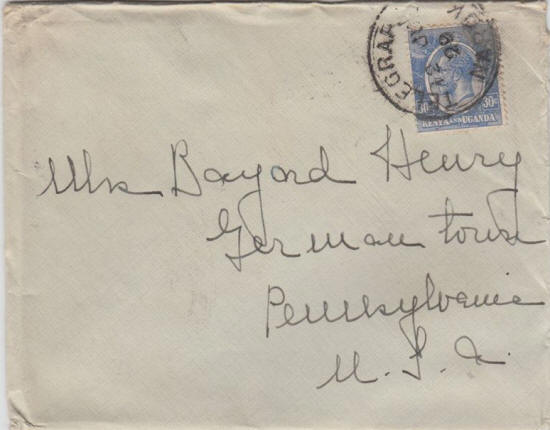 30c 30c
KENYA AND UGANDA
Mrs Bayard Henry
Germantown
Pennsylvania
U. S. A.